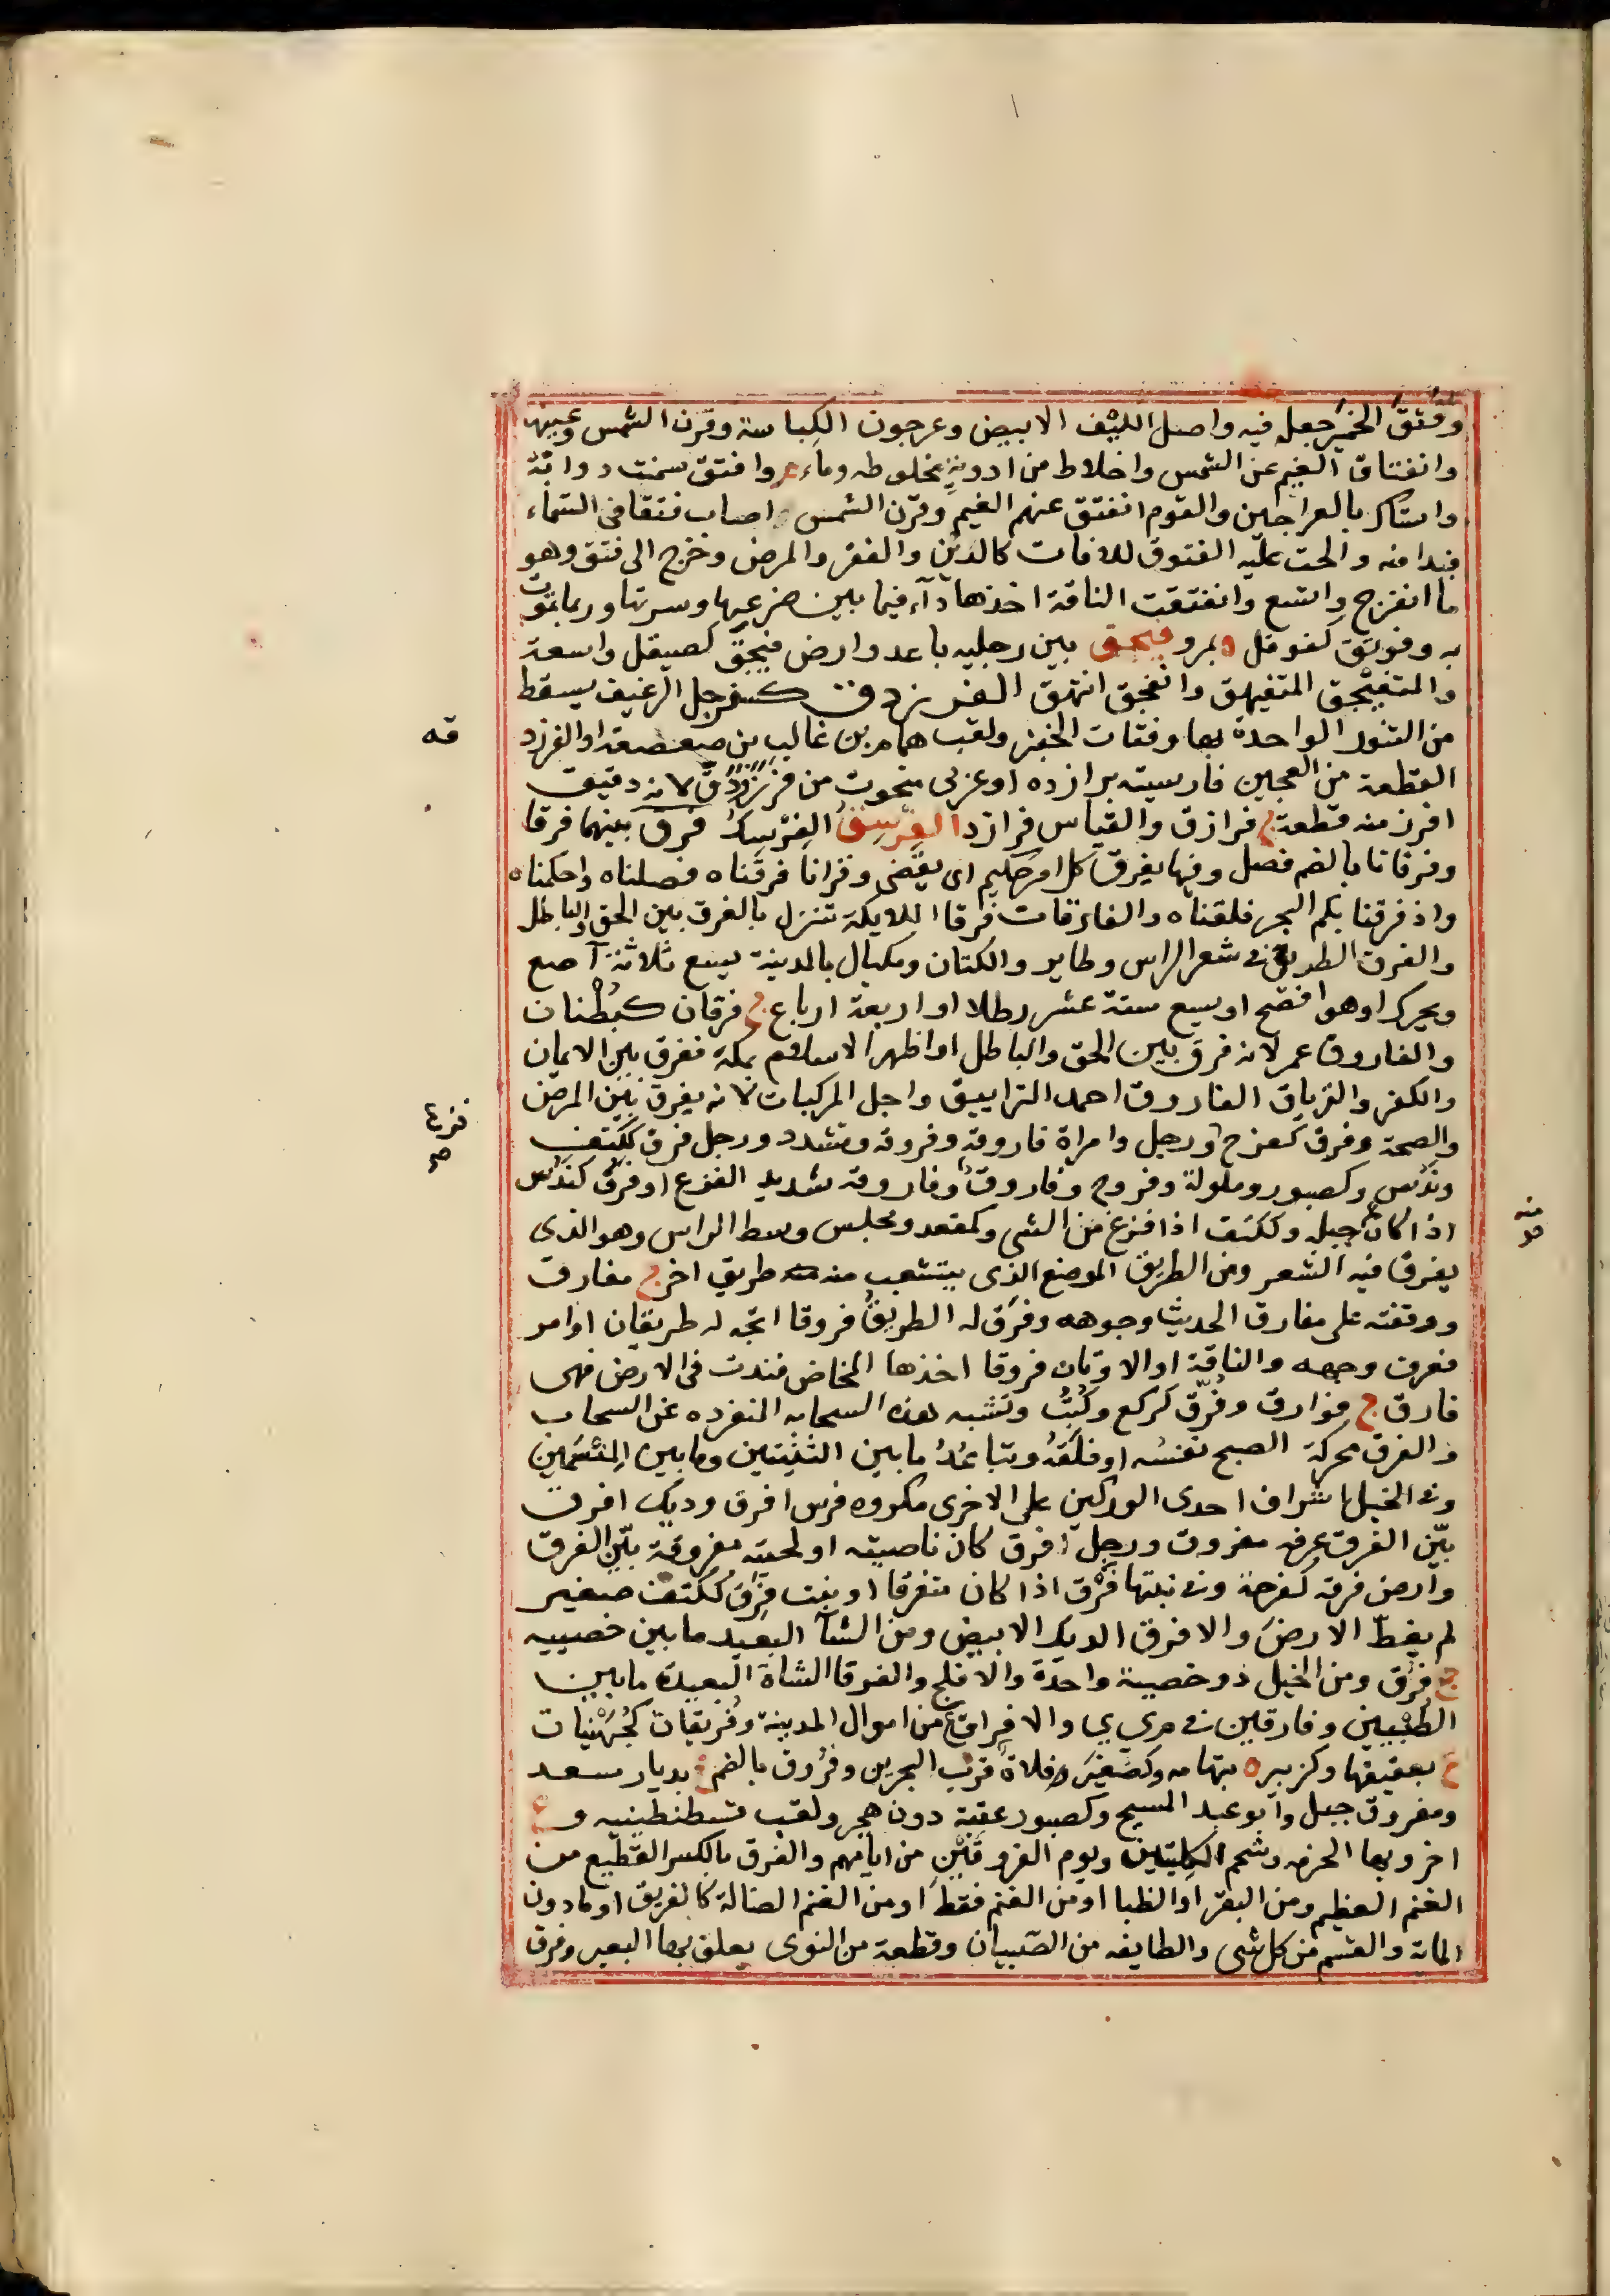 وفتق الخمير جعله فيه واصل الليف الابيض وعرجون الكباسة وقرن الشمس وعينها
وانفتاق الغيم عن الشمس واخلاط من ادوية مخلوطه وماء وافتق سمنت دوابه
واستاك بالعراجين والقوم انفتق عنهم الغيم وقرن الشمس اصاب فتقا في السماء
فبدا منه والحت عليه الفتوق للافات كالدين والفقر والمرض وخرج الى فتق وهو
ما انفرج واتسع وانفتقت الناقة اخذها دآء فيما بين ضرعها وسرتها وربما تموت
به وفويتق كفوفل فيجق بين رجليه باعد وارض فيجق كصيقل واسعة
والمتفيجق المتفيهق وانفجق انتهق الفرزدق كسفرجل الرغيف يسقط
من التنور الواحدة بها وفتات الخبز ولقب همام بن غالب بن صعصعة او الفرزد
القطعة من العجين فارسيته برازده او عربى منحوت من فرز ودق لانه دقيق
افرز منه قطعة ج فرازق والقياس فرازد الفرسق الفرسك فرق بينهما فرقا
وفرقانا بالضم فصل وفيها يفرق كل امر حكيم اى يقضى وقرانا فرقناه فصلناه واحكمناه
واذ فرقنا بكم البحر فلقناه والفارقات فرقا الملايكة تنزل بالفرق بين الحق والباطل
والفرق الطريق فى شعر الراس وطاير والكتان ومكيال بالمدينة يسع ثلاثة آصع
ويحرك او هو افصح او يسع ستة عشر رطلا او اربعة ارباع ج فرقان كبطنان
والفاروق عمر لانه فرق بين الحق والباطل او اظهر الاسلام بمكة ففرق بين الايمان
والكفر والترياق الفاروق احمد الترايبق واجل المركبات لانه يفرق بين المرض
والصحة وفرق كفرح ورجل وامراة فاروقة وفروقة وتشدد ورجل فرق ككتف
وندس وكصبور وملولة وفروج وفاروق وفاروقة شديد الفزع او فرق كندس
اذا كان جبله وككتف اذا فزع من الشى وكمقعد ومجلس وسط الراس وهو الذى
يفرق فيه الشعر ومن الطريق الموضع الذى يتشعب منه طريق اخر ج مفارق
ووقفته على مفارق الحديث وجوهه وفرق له الطريق فروقا اتجه له طريقان او امر
فعرف وجهه والناقة او الاتان فروقا اخذها المخاض فندت فى الارض فهى
فارق ج فوارق وفرق كركع وكتب وتشبه هذه السحابه المنفرده عن السحاب
والفرق محركة الصبح نفسه او فلقه وتباعد ما بين الثنيتين وما بين المنسمين
وفى الخيل اشراف احدى الوركين على الاخرى مكروه فرس افرق وديك افرق
بين الفرق عرفه مفروق ورجل افرق كان ناصيته او لحيته مفروقة بين الفرق
وارض فرقه كفرحة وفى نبتها فرق اذا كان متفرقا او نبت فرق ككتف صغير
لم يغط الارض والافرق الديك الابيض ومن الشآ البعيد ما بين خصييه
ج فرق ومن الخيل ذو خصية واحدة والافلج والفرقا الشاة البعيدة ما بين
الطبيين وفارقين فى م ى ى والافراق ع من اموال المدينة وفريقات كجهينات
ع بعقيقها وكزبير ه بتهامه وكصغير فلاة قرب البحرين وفروق بالضم بديار سعد
ومفروق جبل وابو عبد المسيح وكصبور عقبة دون هجر ولقب قسطنطينيه وع
اخر وبها الحرمه وشحم الكليتين ويوم الفروقين من ايامهم والفرق بالكسر القطيع من
الغنم العظيم ومن البقر او الظبا او من الغنم فقط او من الغنم الضالة كالفريق او ما دون
الماية والقسم من كل شى والطايفه من الصبيان وقطعة من النوى يعلف بها البعير وفرق